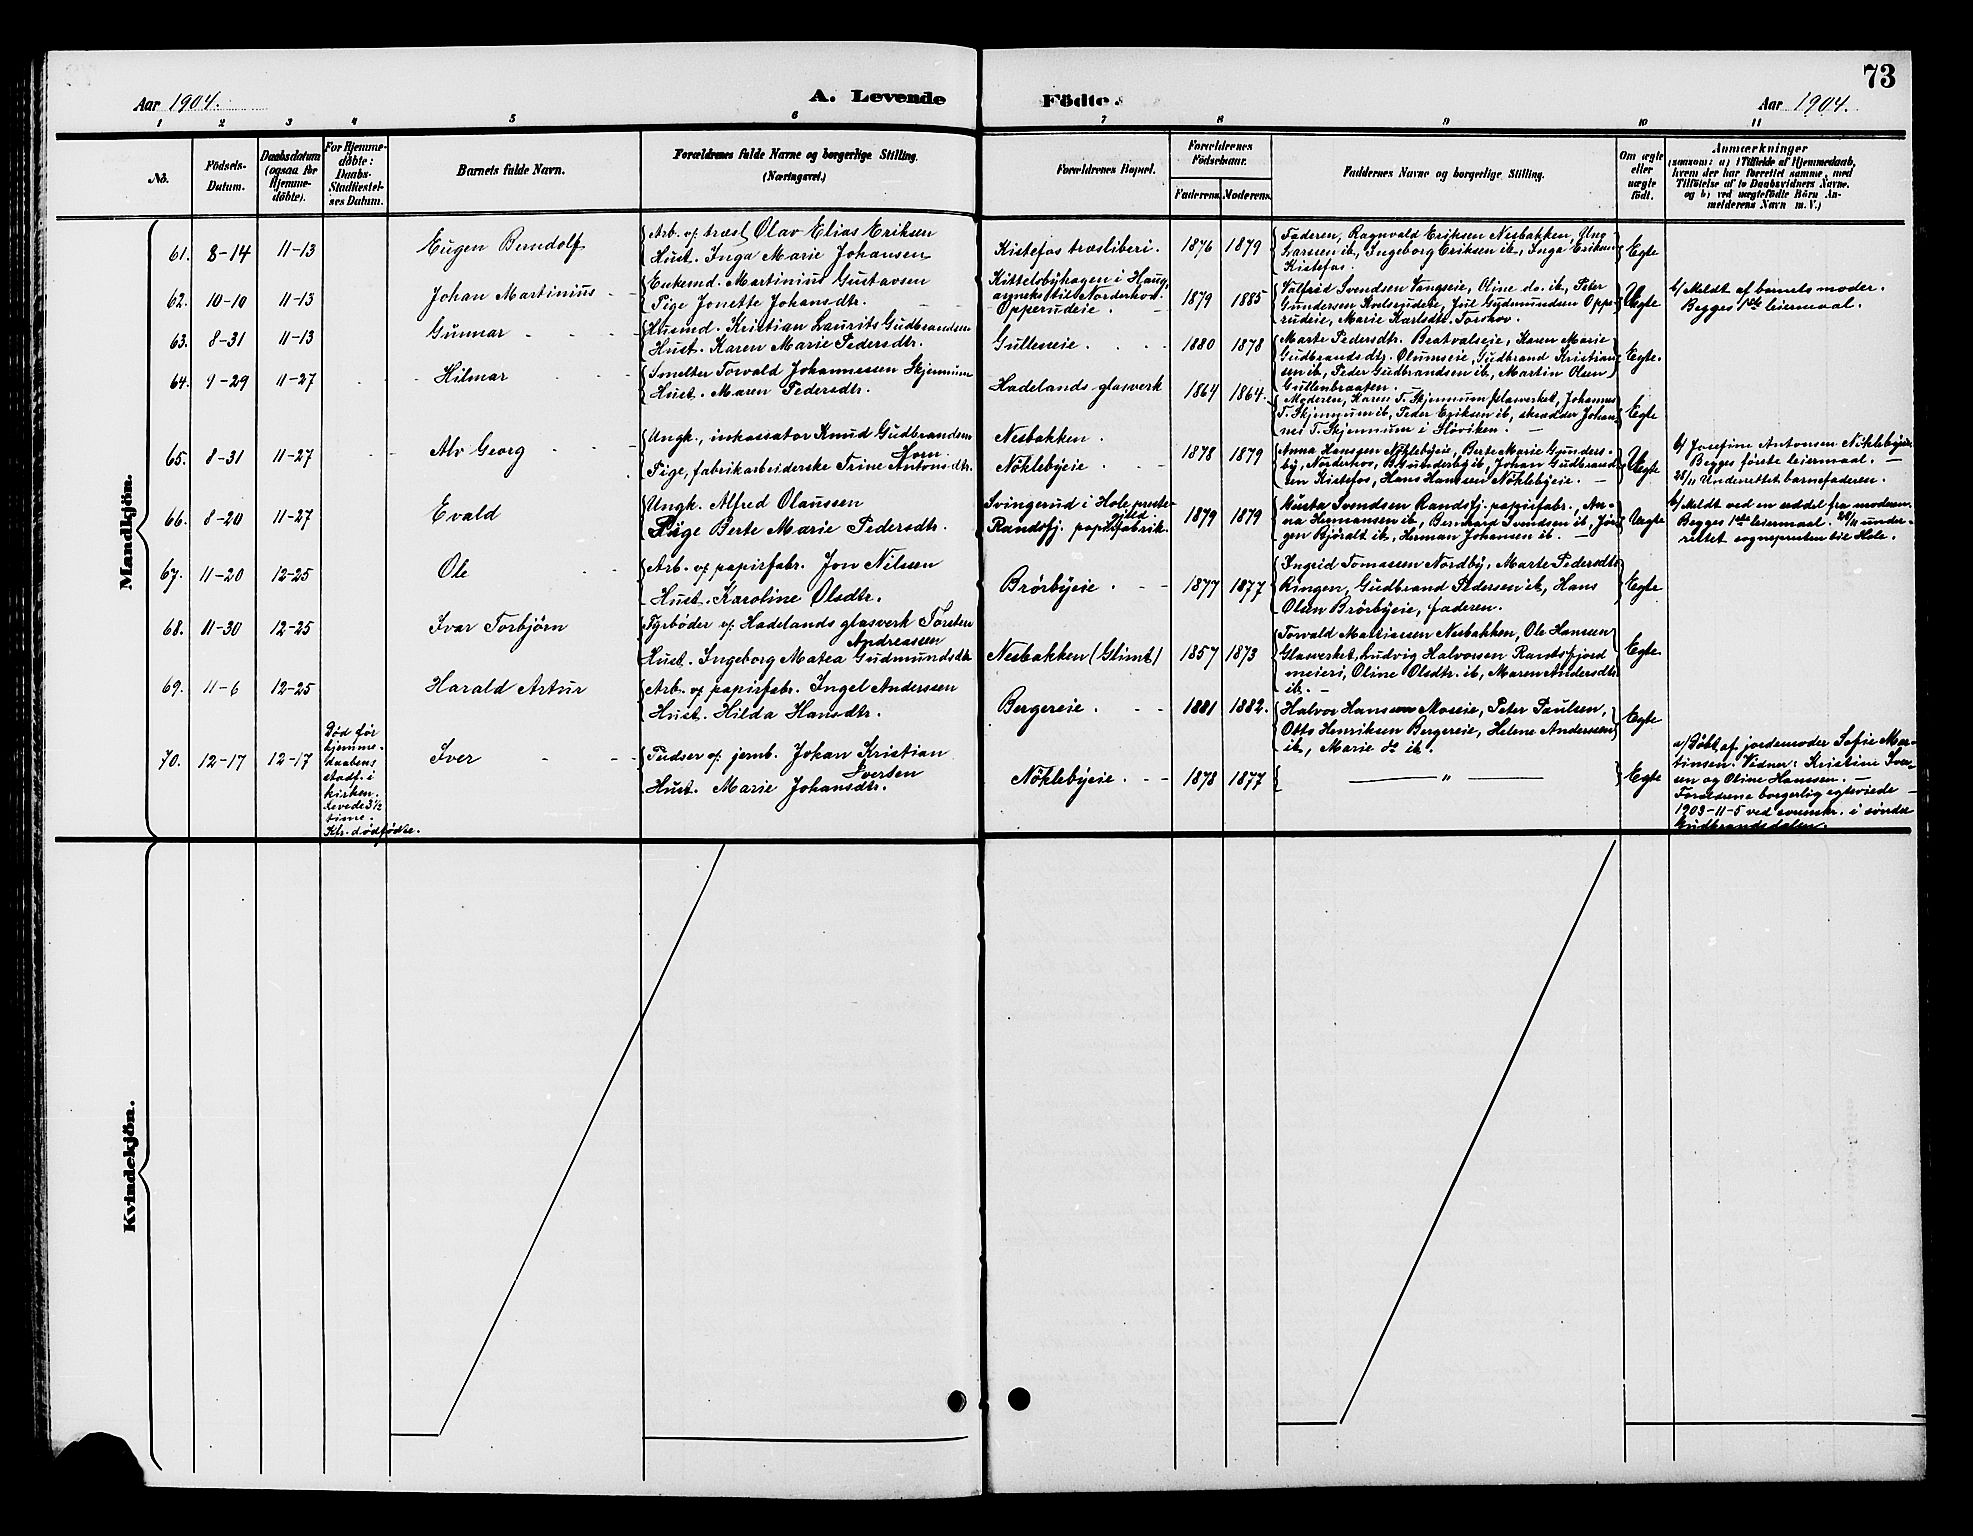 73
Aar 1904.
A. Levende Födte.
Aar 1904.
1 2 3 4 5 6 7 8 9 10 11
No.
Födsels-Datum.
Daabsdatum (ogsaa for Hjemme-döbte).
For Hjemme-döbte: Daabs-Stadfæstel-ses Datum.
Barnets fulde Navn.
Forældrenes fulde Navne og borgerlige Stilling. (Næringsvei.)
Forældrenes Bopæl.
Forældrenes Födselsaar.
Faderens. Moderens.
Faddernes Navne og borgerlige Stilling.
Om ægte eller uægte født.
Anmærkninger
(saasom: a) i Tilfælde af Hjemmedaab, hvem der har forrettet samme, med Tilföielse af to Daabsvidners Navne, og b) ved uægtefödte Börn Anmelderens Navn m. V.)
Mandkjön.
61. 8-14 11-13 Eugen Berndolf
Arb. v. træsl. Olav Elias Eriksen
Hust. Inga Marie Johansen
Kistefos træsliberi. 1876 1879
Faderen, Ragnvald Eriksen Nesbakken, Ung
Larssen ib., Ingeborg Eriksen ib., Inga Eriksen
Kistefos.
Egte
62. 10-10 11-13 Johan Martinius
Enkemd. Martinius Gustavsen
Pige Jonette Johansdtr.
Kittelsbyhagen i Haug
annekstil Norderhov.
Opperudeie. 1879 1885
Valfred Svendsen Vangseie, Oline do. ib., Peter
Gundersen Kolsrudeie, Jul Gudmundsen Oppe
rudeie, Marie Karlsdtr. Torshov.
Uegte
b/ Meldt af barnets moder.
Begges 1ste leiermaal.
63. 8-31 11-13 Gunnar
Husmd. Kristian Laurits Gudbrandsen
Hust. Karen Marie Pedersdtr.
Gulleneie. 1880 1878
Marte Pedersdtr. Bratvalseie, Karen Marie
Gudbrandsdtr. Olumseie, Gudbrand Kristian-
sen ib., Peder Gudbrandsen ib., Martin Olsen
Gullenbraaten.
Egte.
64. 9-29 11-27 Hilmar
Smelter Torvald Johannessen Skjennum
Hust. Maren Pedersdtr.
Hadelands glasverk 1864 1864.
Moderen, Karen T. Skjennum Glasverket, Johannes
T. Skjennum ib., Peder Eriksen ib., skrædder Johan
nes T. Skjennum i Sløviken.
Egte
65. 8-31 11-27 Alv Georg
Ungk., inkassator Knud Gudbrandsen
Horn.
Pige, fabrikarbeiderske Trine Antonsdtr.
Nesbakken.
Nöklebyeie 1878 1879
Anna Hanssen Nöklebyeie, Berte Marie Gunders-
by, Norderhov, B. Gundersby ib., Johan Gudbrand
sen Kistefos, Hans Hanssen Nöklebyeie.
Uegte
b/ Josefine Antonsen Nöklebyeie.
Begges første leiermaal.
28/11 Underrettet barnefaderen.
66. 8-20 11-27 Evald
Ungk. Alfred Olaussen
Pige Berte Marie Pedersdtr.
Svingerud i Hole preste-
gjeld.
Randsfj. papirfabrik. 1879 1879
Gusta Svendsen Randsfj. papirfabr., An-
na Hermansen ib., Bernhard Svendsen ib., Jør
gen Björalt ib., Herman Johansen ib.
Uegte
b/ Meldt ved en seddel fra moderen.
Begges 1ste leiermaal. 28/11 under-
rettet sognepresten til Hole.
67. 11-20 12-25 Ole
Arb. v. papirfabr. Jon Nilsen
Hust. Karoline Olsdtr.
Brörbyeie 1877 1877
Ingrid Tomassen Nordby, Marte Pedersdtr.
Ringen, Gudbrand Pedersen ib., Hans
Olsen Brörbyeie, faderen.
Egte
68. 11-30 12-25 Ivar Torbjörn
Fyrbøder v. Hadelands glasverk Torsten
Andreassen
Hust. Ingeborg Matea Gudmundsdtr
Nesbakken (Glimt) 1857 1873
Torvald Mathiassen Nesbakken, Ole Hanssen
Glasverket, Ludvig Halvorsen Randsfjord
meieri, Oline Olsdtr. ib., Maren Andersdtr
ib.
Egte
69. 11-6 12-25 Harald Artur
Arb. v. papirfabr. Ingel Anderssen
Hust. Hilda Hansdtr.
Bergereie 1881 1882.
Halvor Hanssen Moseie, Peter Paulsen,
Otto Henriksen Bergereie, Helene Anderssen
ib., Marie do ib.
Egte
70. 12-17 12-17
Död før
hjemme-
daabens
stadf. i
kirken.
Levede 3½
time.
Klr. dødfødse.
Iver
Pudser v. jernb. Johan Kristian
Iversen
Hust. Marie Johansdtr.
Nöklebyeie 1878 1877
"
Egte
a/ Döbt af jordemoder Sofie Mar-
tinsen. Vidner: Kristine Iver-
sen og Oline Hanssen.
Forældrene borgerlig egteviede
1903-11-5 ved sorenskr. i söndre
Gudbrandsdalen.
Kvindekjön.